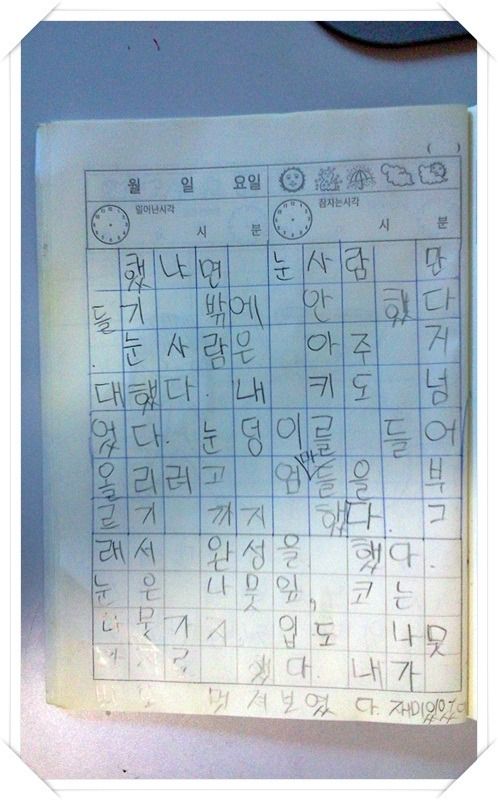 ( )
월 일 요일
일어난시각 잠자는시각
시 분 시 분
했냐면 눈사람 만
들기 밖에 안 했다
. 눈사람은 아주 거
대했다. 내 키도 넘
었다. 눈덩이를 들어
올리러고 엄마들을 부
르기 까지 했다. 그
래서 완성을 했다.
눈은 나뭇잎, 코는
나뭇가지 입도 나뭇
했다. 내가
멋져보였다.